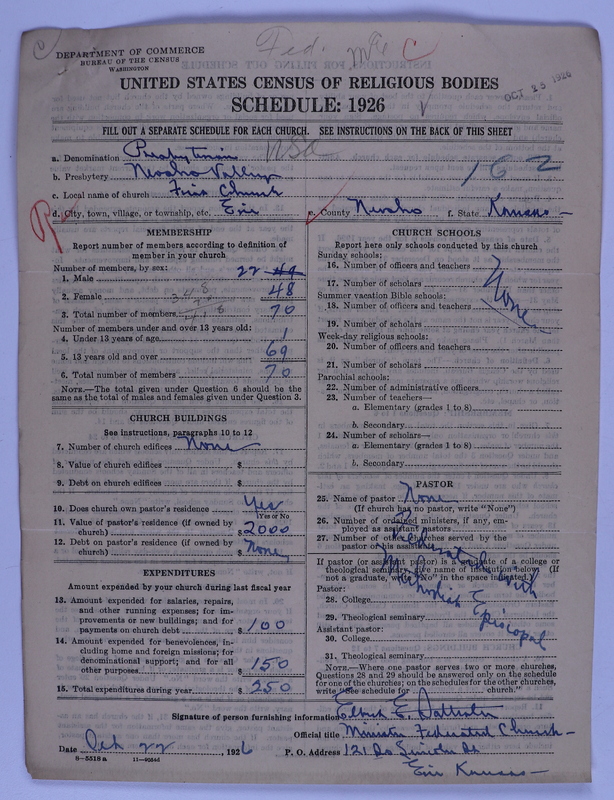 DEPARTMENT OF COMMERCE
BUREAU OF THE CENSUS
WASHINGTON
Fed.
C
C
OCT 23 1926
UNITED STATES CENSUS OF RELIGIOUS BODIES
SCHEDULE: 1926
FILL OUT A SEPARATE SCHEDULE FOR EACH CHURCH. SEE INSTRUCTIONS ON THE BACK OF THIS SHEET
a. Denomination Presbyterian USA
b. Presbytery Neosho Valley 162
c. Local name of church First Church
d. City, town, village, or township, etc. Erie e. County Neosho f. State Kansas
MEMBERSHIP
Report number of members according to definition of
member in your church
Number of members, by sex:
1. Male 22
2. Female 48
3. Total number of members 70
Number of members under and over 13 years old:
4. Under 13 years of age 1
5. 13 years old and over 69
6. Total number of members 70
NOTE.—The total given under Question 6 should be
same as the total of males and females given under Question 3.
CHURCH BUILDINGS
See instructions, paragraphs 10 to 12
7. Number of church edifices None
8. Value of church edifices $
9. Debt on church edifices $
10. Does church own pastor's residence Yes
Yes or No
11. Value of pastor's residence (if owned by
church) $2000
12. Debt on pastor's residence (if owned by
church) $ None
EXPENDITURES
Amount expended by your church during last fiscal year
13. Amount expended for salaries, repairs,
and other running expenses; for im-
provements or new buildings; and for
payments on church debt $ 100
14. Amount expended for benevolences, in-
cluding home and foreign missions; for
denominational support; and for all
other purposes $ 150
15. Total expenditures during year $ 250
CHURCH SCHOOLS
Report here only schools conducted by this church
Sunday schools:
16. Number of officers and teachers
17. Number of scholars
Summer vacation Bible schools:
18. Number of officers and teachers
None
19. Number of scholars
Week-day religious schools:
20. Number of officers and teachers
21. Number of scholars
Parochial schools:
22. Number of administrative officers
23. Number of teachers—
a. Elementary (grades 1 to 8)
b. Secondary
24. Number of scholars—
a. Elementary (grades 1 to 8)
b. Secondary
PASTOR
25. Name of pastor None
(If church has no pastor, write "None")
26. Number of ordained ministers, if any, em-
ployed as assistant pastors
27. Number of other churches served by the
pastor or his assistants
Federated with
Methodist Episcopal
If pastor (or assistant pastor) is a graduate of a college or
theological seminary, give name of institution below (If
not a graduate, write "No" in the space indicated.)
Pastor:
28. College
29. Theological seminary
Assistant pastor:
30. College
31. Theological seminary
NOTE.—Where one pastor serves two or more churches,
Questions 28 and 29 should be answered only on the schedule
for one of the churches; on the schedules for the other churches,
write "See schedule for church."
Signature of person furnishing information E.
Official title Minister Federated Church
Date Oct 22, 1926 P. O. Address 121 So Lincoln St
8-5518a
Erie Kansas